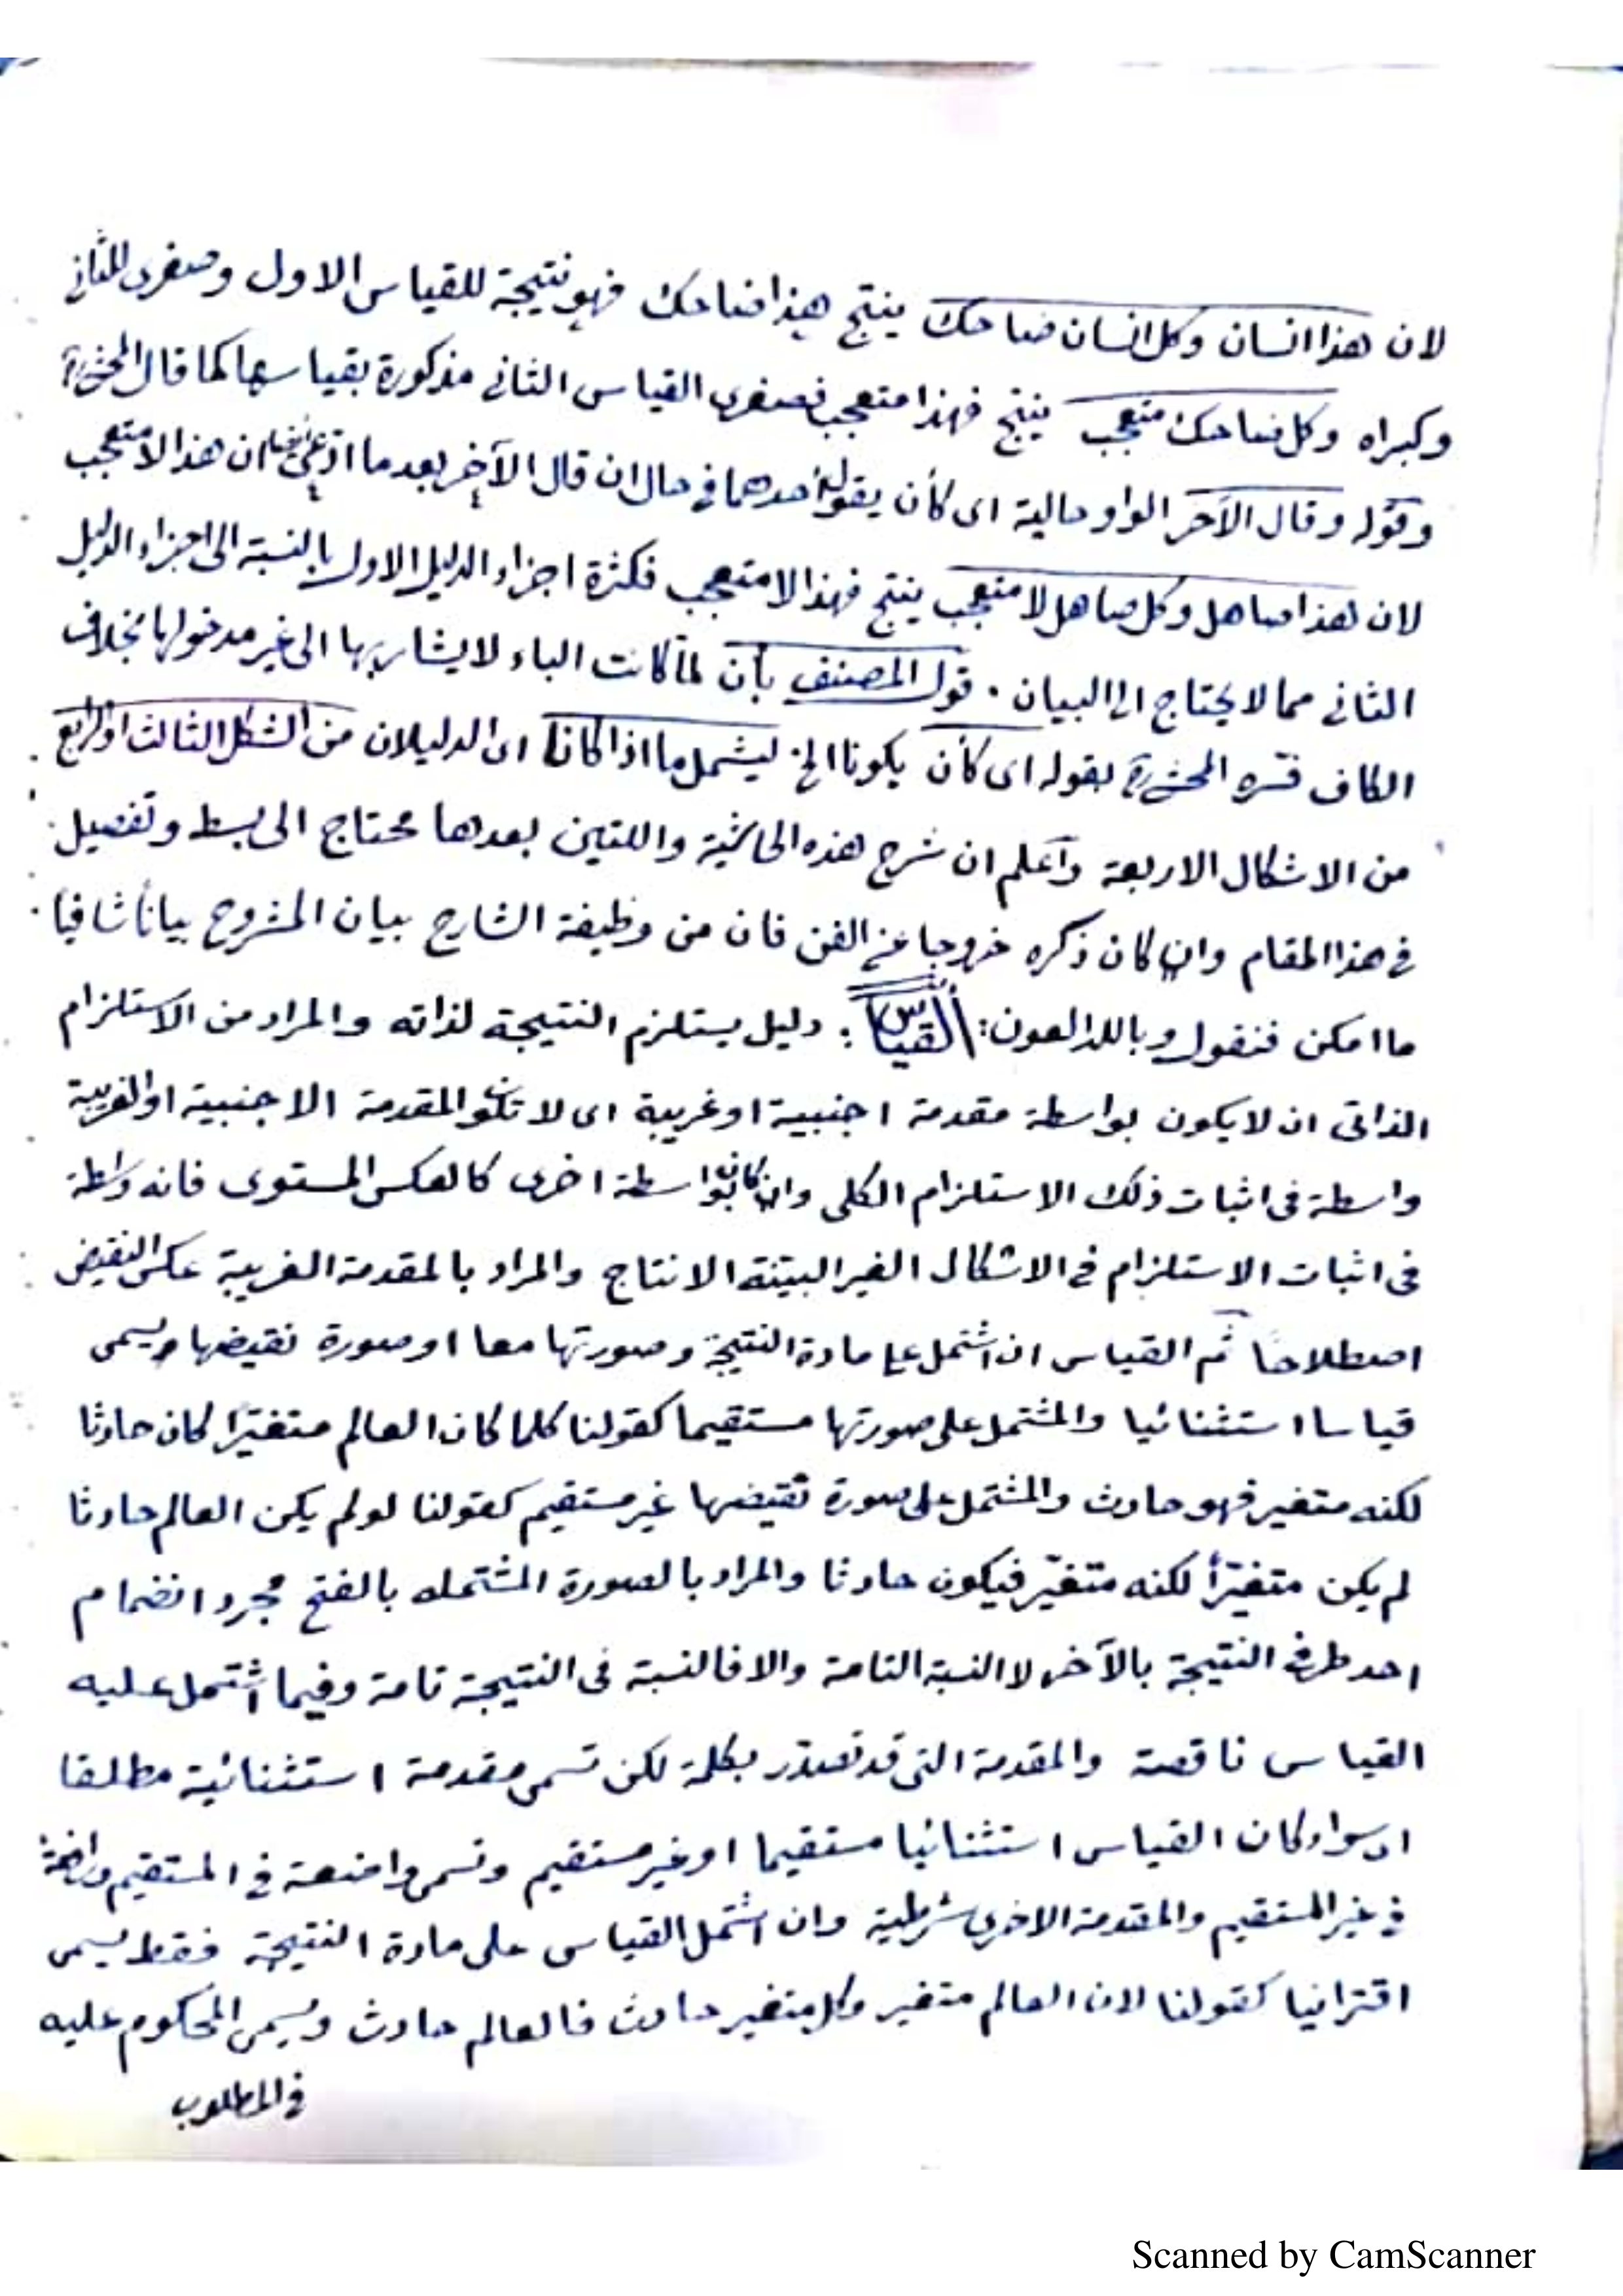 لان هذا انسان وكل انسان ضاحك ينتج هذا ضاحك فهو نتيجة للقياس الاول وصغرى للثاني
وكبراه وكل ضاحك متعجب ينتج فهذا متعجب فصغرى القياس الثاني مذكورة بقياسها كما قال المحشي
وقوله وقال الآخر الواو حالية اى كأن يقول احدهما في حال ان قال الآخر بعد ما ادعى ان هذا لا متعجب
لان هذا صاهل وكل صاهل لا متعجب ينتج فهذا لا متعجب فكثرة اجزاء الدليل الاول بالنسبة الى اجزاء الدليل
الثاني مما لا يحتاج الى البيان . قول المصنف بأن لما كانت الباء لا يشار بها الى غير مدخولها بخلاف
الكاف فسره المحشي بقوله اى كأن يكونا الخ ليشمل ما اذا كانا اى الدليلان من الشكل الثالث او الرابع
من الاشكال الاربعة واعلم ان شرح هذه الحاشية واللتين بعدها محتاج الى بسط وتفصيل
في هذا المقام وان كان ذكره خروجا عن الفن فان من وظيفة الشارح بيان المشروح بيانا شافيا
ما امكن فنقول وبالله العون: القياس : دليل يستلزم النتيجة لذاته والمراد من الاستلزام
الذاتى ان لا يكون بواسطة مقدمة اجنبية او غريبة اى لا تكون المقدمة الاجنبية او الغريبة
واسطة فى اثبات ذلك الاستلزام الكلى وان كان بواسطة اخرى كالعكس المستوى فانه واسطة
فى اثبات الاستلزام في الاشكال الغير البينة الانتاج والمراد بالمقدمة الغريبة عكس النقيض
اصطلاحا ثم القياس ان اشتمل على مادة النتيجة وصورتها معا او صورة نقيضها ويسمى
قياسا استثنائيا والمشتمل على صورتها مستقيما كقولنا كلما كان العالم متغيرا كان حادثا
لكنه متغير فهو حادث والمشتمل على صورة نقيضها غير مستقيم كقولنا لو لم يكن العالم حادثا
لم يكن متغيرا لكنه متغير فيكون حادثا والمراد بالصورة المشتمله بالفتح مجرد انضمام
احد طرفى النتيجة بالآخر لا النسبة التامة والا فالنسبة فى النتيجة تامة وفيما اشتمل عليه
القياس ناقصة والمقدمة التى قد تصدر بكلمة لكن تسمى مقدمة استثنائية مطلقا
اى سواء كان القياس استثنائيا مستقيما او غير مستقيم وتسمى واضعة في المستقيم ورافعة
في غير المستقيم والمقدمة الاخرى شرطية وان اشتمل القياس على مادة النتيجة فقط يسمى
اقترانيا كقولنا لان العالم متغير وكل متغير حادث فالعالم حادث ويسمى المحكوم عليه
في المطلوب
Scanned by CamScanner